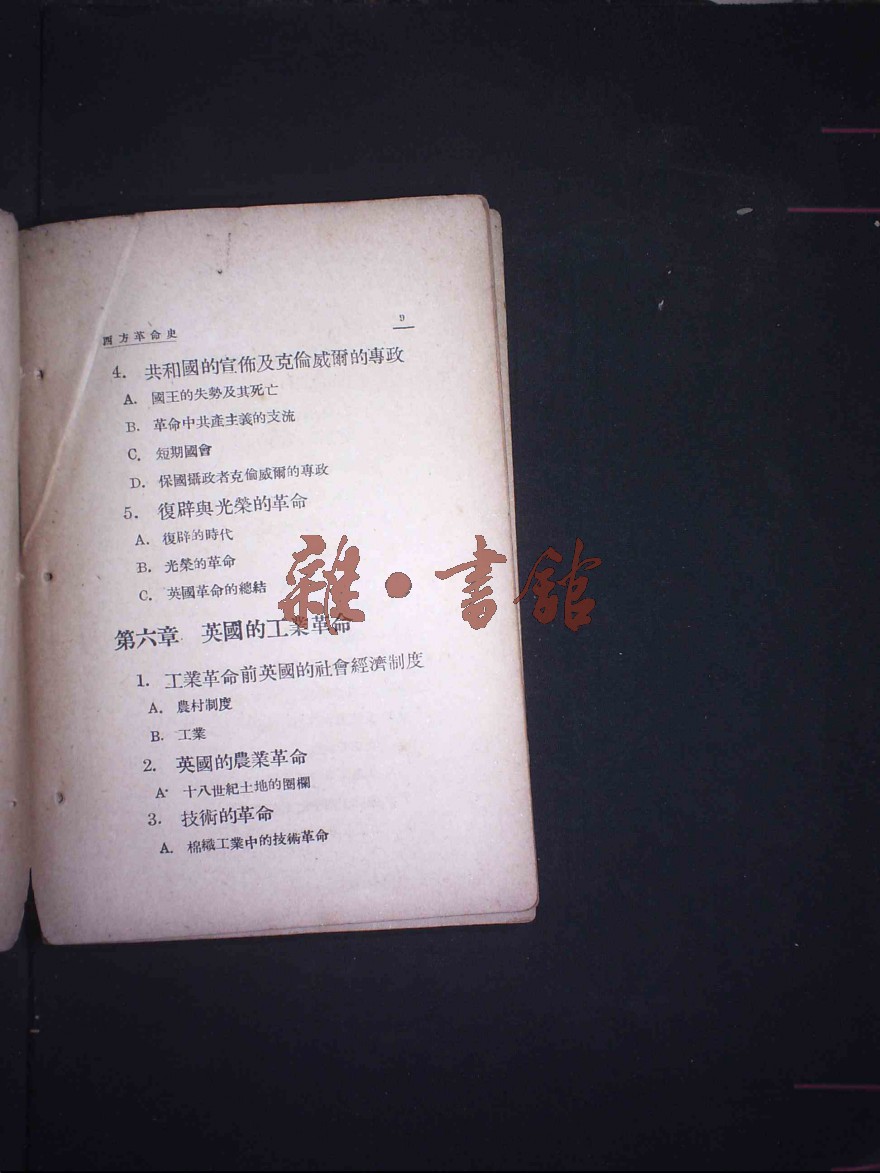 西方革命史 9
4. 共和國的宣佈及克倫威爾的專政
A. 國王的失勢及其死亡
B. 革命中共產主義的支流
C. 短期國會
D. 保國攝政者克倫威爾的專政
5. 復辟與光榮的革命
A. 復辟的時代
B. 光榮的革命
C. 英國革命的總結
雜·書館
第六章 英國的工業革命
1. 工業革命前英國的社會經濟制度
A. 農村制度
B. 工業
2. 英國的農業革命
A· 十八世紀土地的圈欄
3. 技術的革命
A. 棉織工業中的技術革命